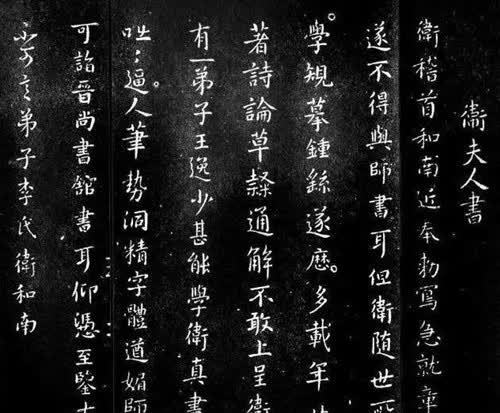 衛夫人書
衛稽首和南近奉勅寫急就章
遂不得與師書耳但衛隨世所
學規摹鍾繇遂歷多載年
著詩論草隸通解不敢上呈衛
有一弟子王逸少甚能學衛真書
咄咄逼人筆勢洞精字體遒媚師
可詣晉尚書館書耳仰憑至鑒大
不可言弟子李氏衛和南